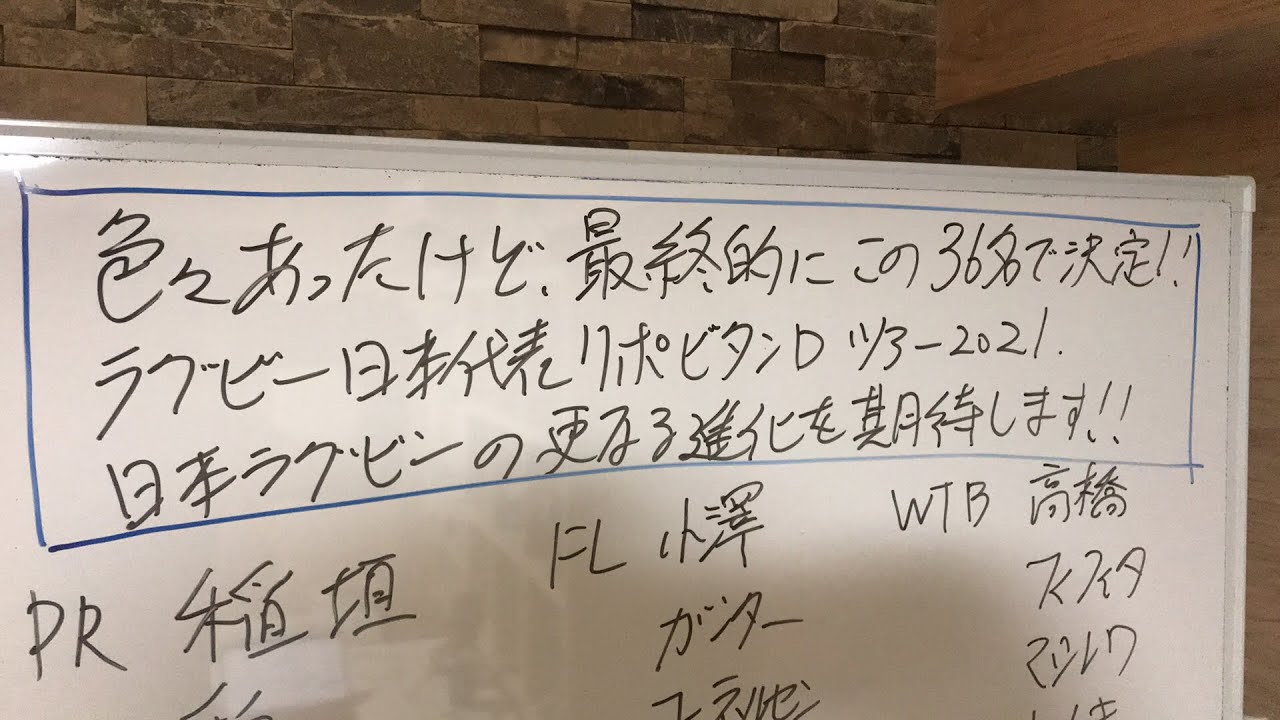 色々あったけど、最終的にこの36名で決定!!
ラグビー日本代表リポビタンD ツアー2021.
日本ラグビーの更なる進化を期待します!!
PR 稲垣
FL 小澤
ガンター
コーネルセン
WTB 高橋
フィフィタ
マシレワ